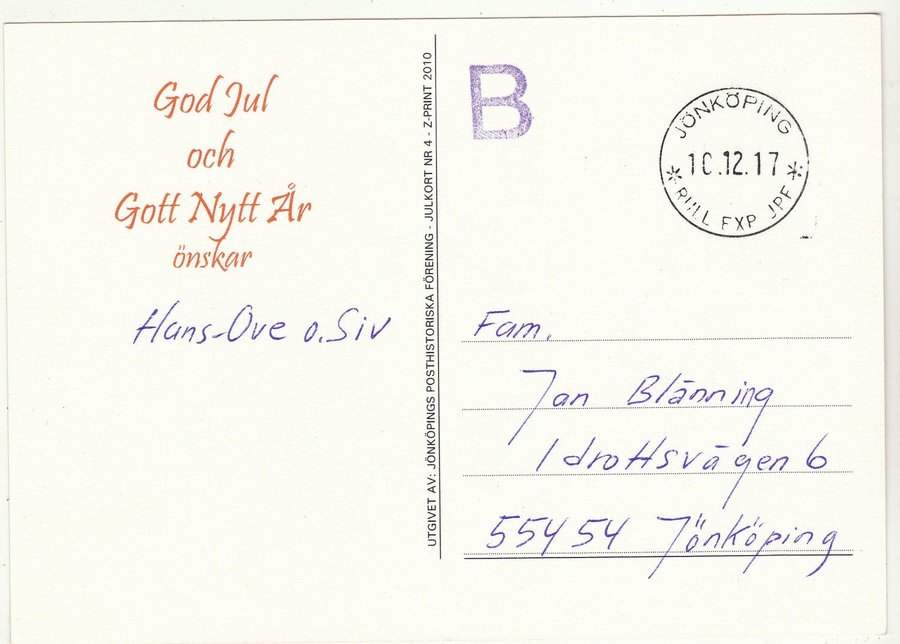 God Jul
och
Gott Nytt År
önskar
Hans-Ove o. Siv
UTGIVET AV: JÖNKÖPINGS POSTHISTORISKA FÖRENING - JULKORT NR 4 - Z-PRINT 2010
B
JÖNKÖPING
10.12.17
RULL EXP JPF
Fam.
Jan Blänning
Idrottsvägen 6
554 54 Jönköping